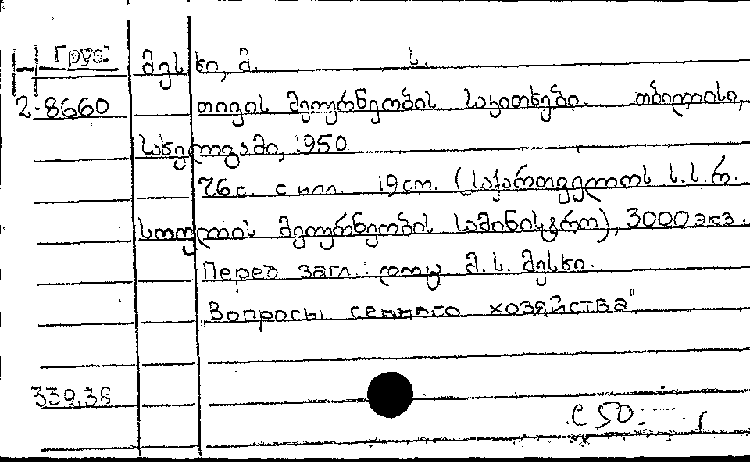 Груз.
მესხი, მ. ს.
2-8660 თივის მეურნეობის საკითხები. თბილისი,
სახელგამი, 1950
76 с. с илл. 19 см. (საქართველოს ს.ს.რ.
სოფლის მეურნეობის სამინისტრო), 3000 экз.
Перед загл.: დოც. მ. ს. მესხი.
Вопросы сенного хозяйства"
339.38
с 50